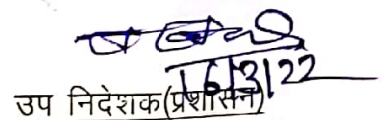 16/3/22
उप निदेशक(प्रशासन)